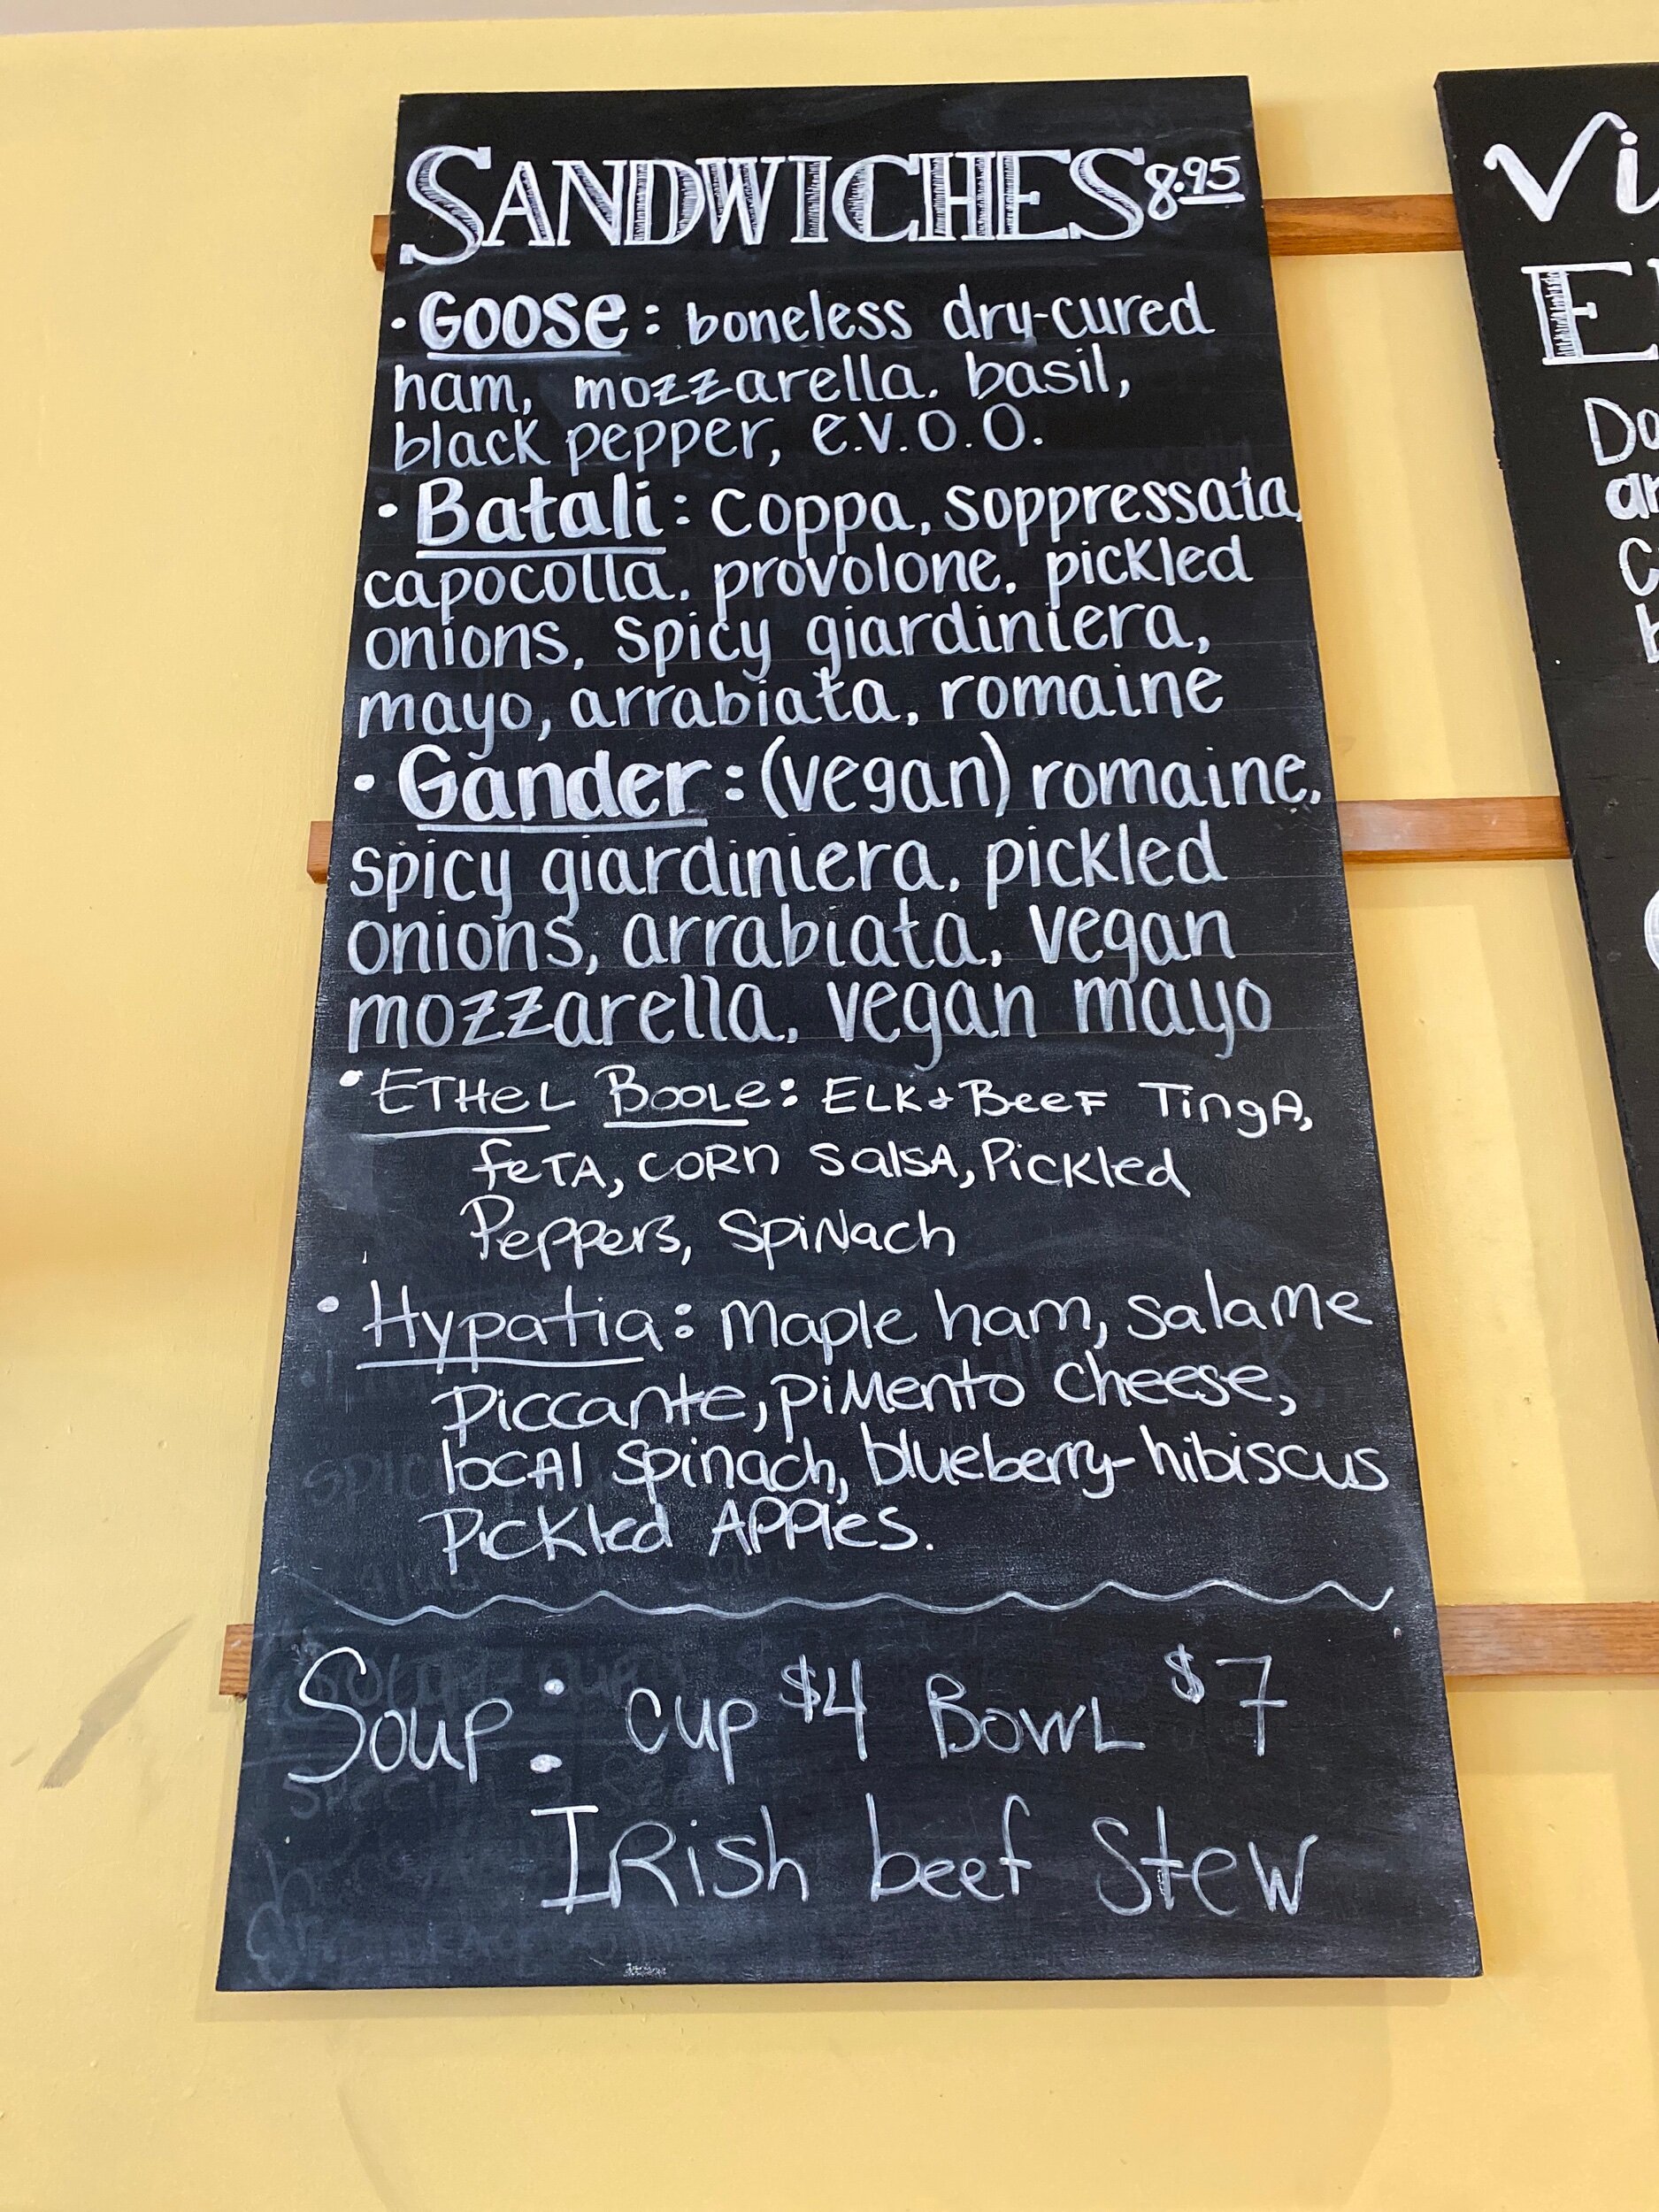 SANDWICHES 8.95
• Goose: boneless dry-cured
ham, mozzarella. basil,
black pepper, e.v.o.o.
• Batali: coppa, soppressata,
capocolla, provolone, pickled
onions, spicy giardiniera,
mayo, arrabiata, romaine
• Gander: (vegan) romaine,
spicy giardiniera, pickled
onions, arrabiata, vegan
mozzarella, vegan mayo
• ETHeL BOOLe: ELK + BeeF TingA,
feTA, CORn SalsA, Pickled
Peppers, SpiNach
• Hypatia: Maple ham, Salame
Piccante, piMento Cheese,
locAl Spinach, blueberry-hibiscus
Pickled APPles.
Soup: cup $4 BowL $7
IRish beef Stew
Vi
E
Do
ar